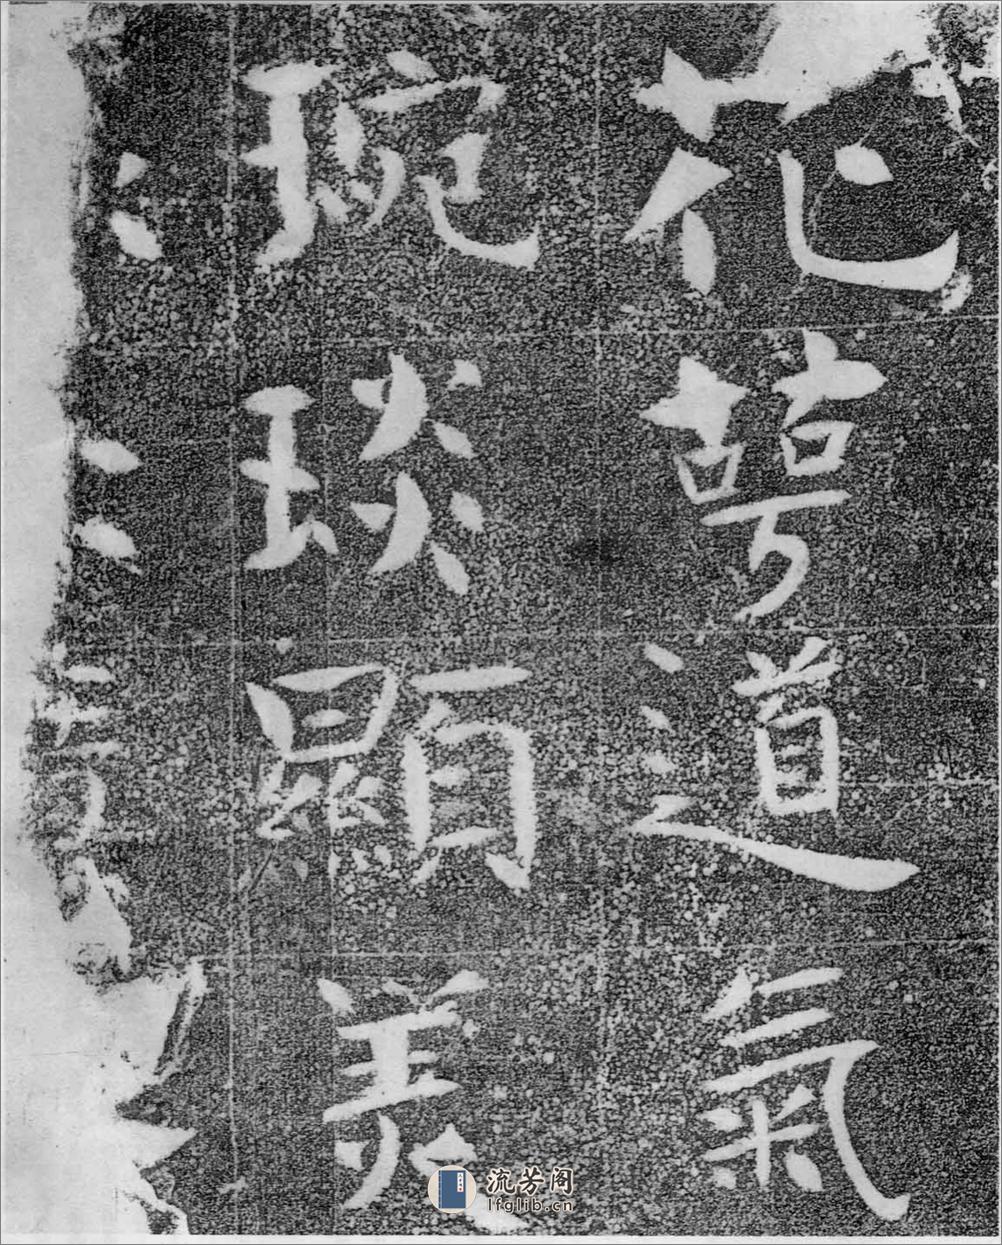 花萼道氣
琬琰顯美
流芳阁
lfglib.cn